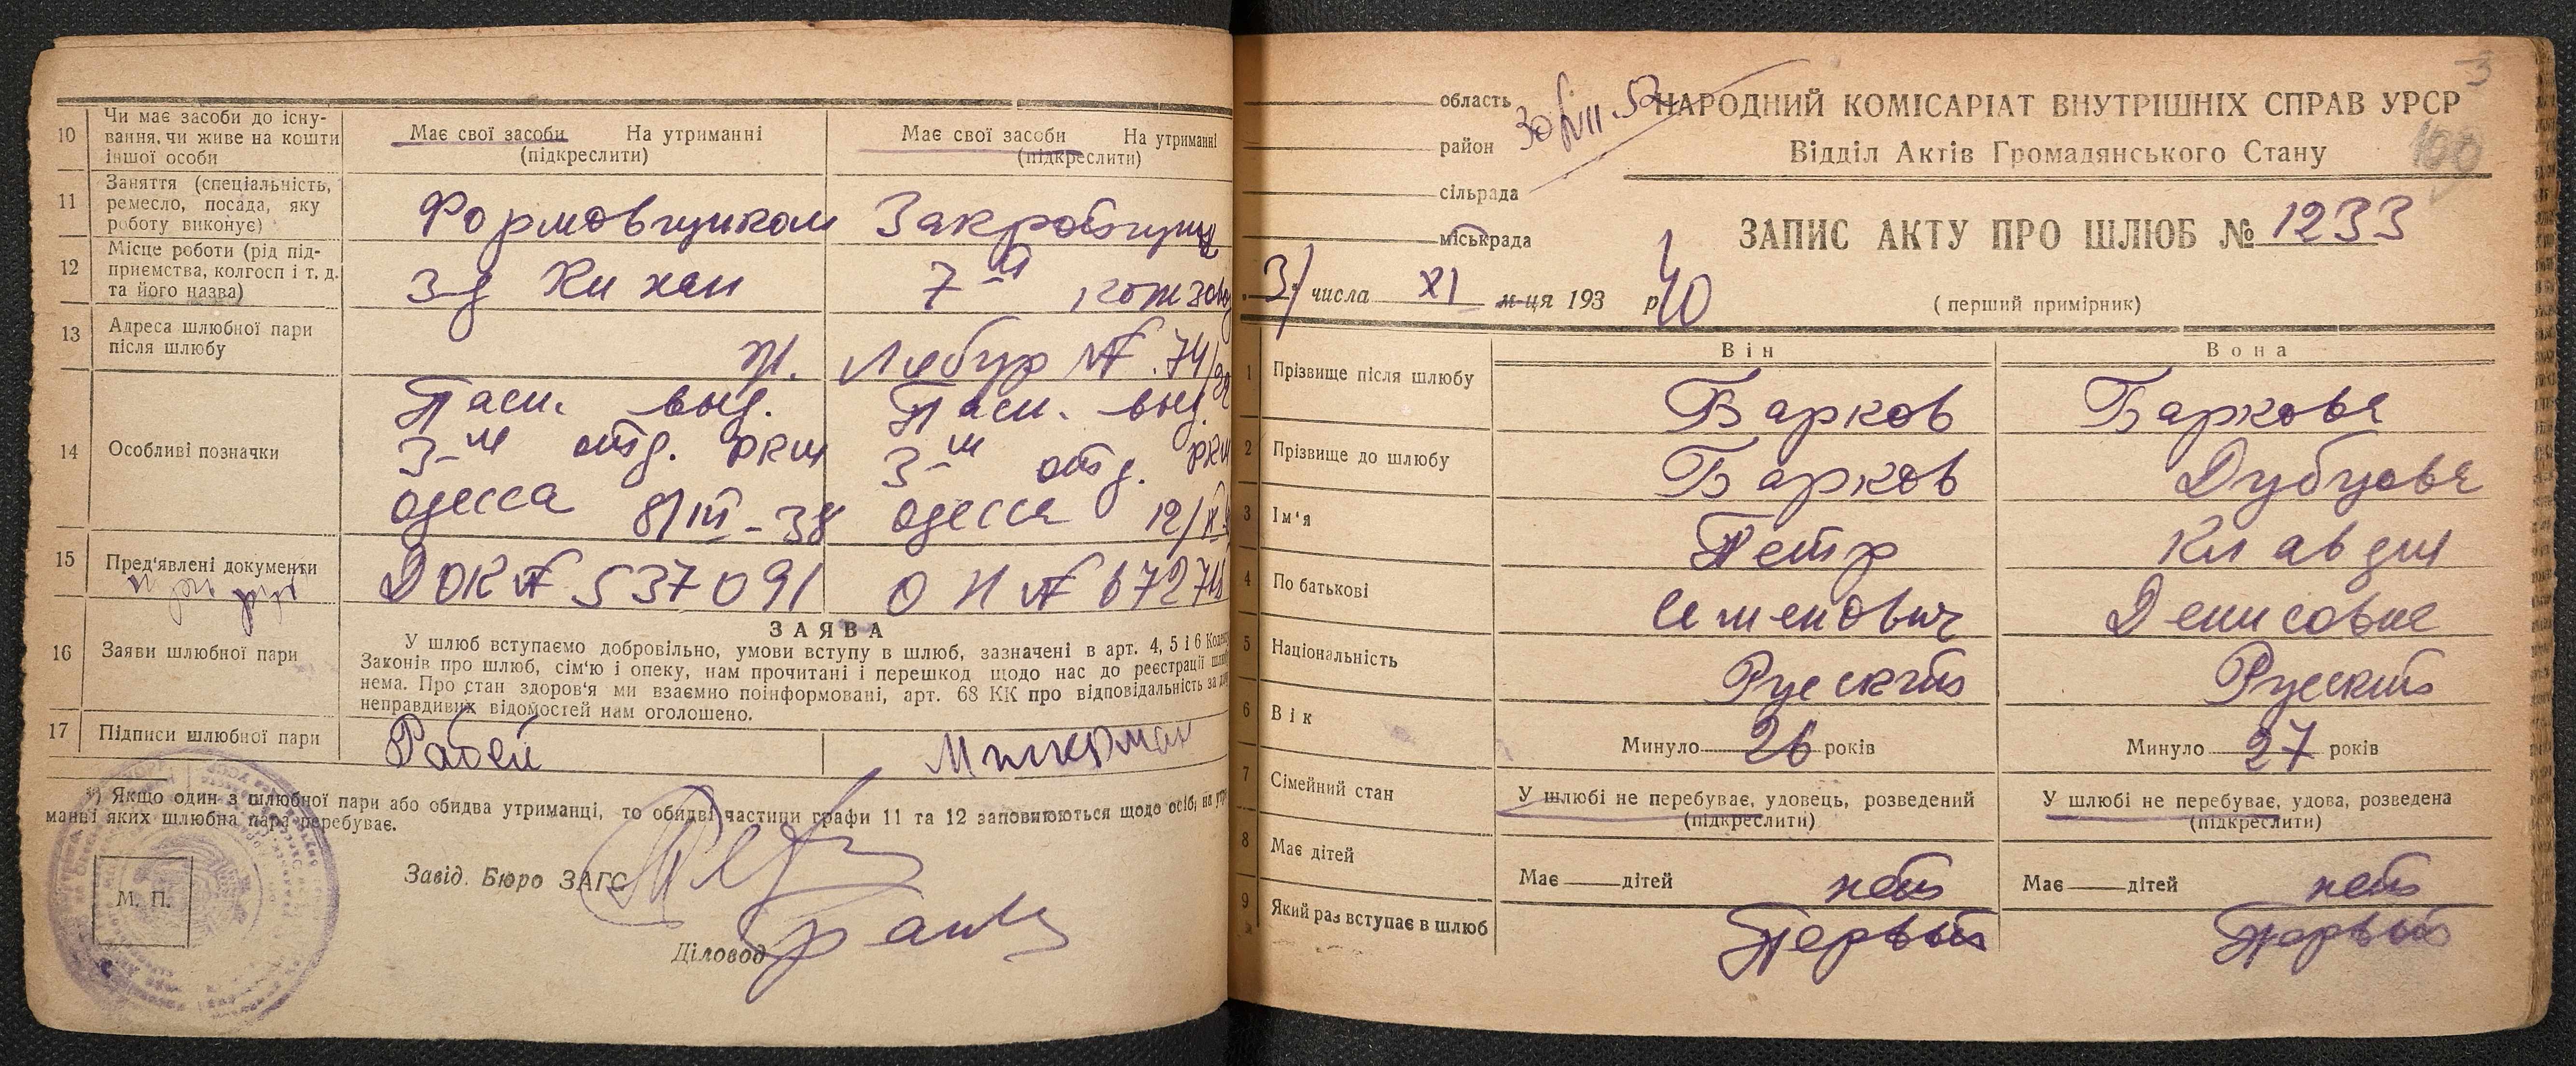 10 Чи має засоби до існу-
вання, чи живе на кошти
іншої особи
Має свої засоби На утриманні
(підкреслити)
Має свої засоби На утриманні
(підкреслити)
11 Заняття (спеціальність,
ремесло, посада, яку
роботу виконує)
Формовщиком
12 Місце роботи (рід під-
приємства, колгосп і т. д.
та його назва)
З-д
7-й
13 Адреса шлюбної пари
після шлюбу
№ 74/
14 Особливі позначки
Пасп. выд.
3-м отд. РКМ
Одесса 8/III-38
Пасп. выд.
3-м отд. РКМ
Одесса 12/
15 Пред'явлені документи
ДОК № 537091
№ 6727
16 Заяви шлюбної пари
ЗАЯВА
У шлюб вступаємо добровільно, умови вступу в шлюб, зазначені в арт. 4, 5 і 6
Законів про шлюб, сім'ю і опеку, нам прочитані і перешкод щодо нас до реєстрації
нема. Про стан здоров'я ми взаємно поінформовані, арт. 68 КК про відповідальність за
неправдивих відомостей нам оголошено.
17 Підписи шлюбної пари
*) Якщо один з шлюбної пари або обидва утриманці, то обидві частини графи 11 та 12 заповнюються щодо осіб, на
манні яких шлюбна пара перебуває.
М. П.
Завід. Бюро ЗАГС
Діловод
3
область
район
сільрада
міськрада
30/VII.52
НАРОДНИЙ КОМІСАРІАТ ВНУТРІШНІХ СПРАВ УРСР
Відділ Актів Громадянського Стану
ЗАПИС АКТУ ПРО ШЛЮБ № 1233
3/ числа XI м-ця 193 р 40
(перший примірник)
Він
Вона
1 Прізвище після шлюбу
Барков
Баркова
2 Прізвище до шлюбу
Барков
Дубцова
3 Ім'я
Петр
Клавдия
4 По батькові
Семенович
Денисовна
5 Національність
Русский
Русский
6 Вік
Минуло 26 років
Минуло 27 років
7 Сімейний стан
У шлюбі не перебуває, удовець, розведений
(підкреслити)
У шлюбі не перебуває, удова, розведена
(підкреслити)
8 Має дітей
Має дітей нет
Має дітей нет
9 Який раз вступає в шлюб
Первый
Первый